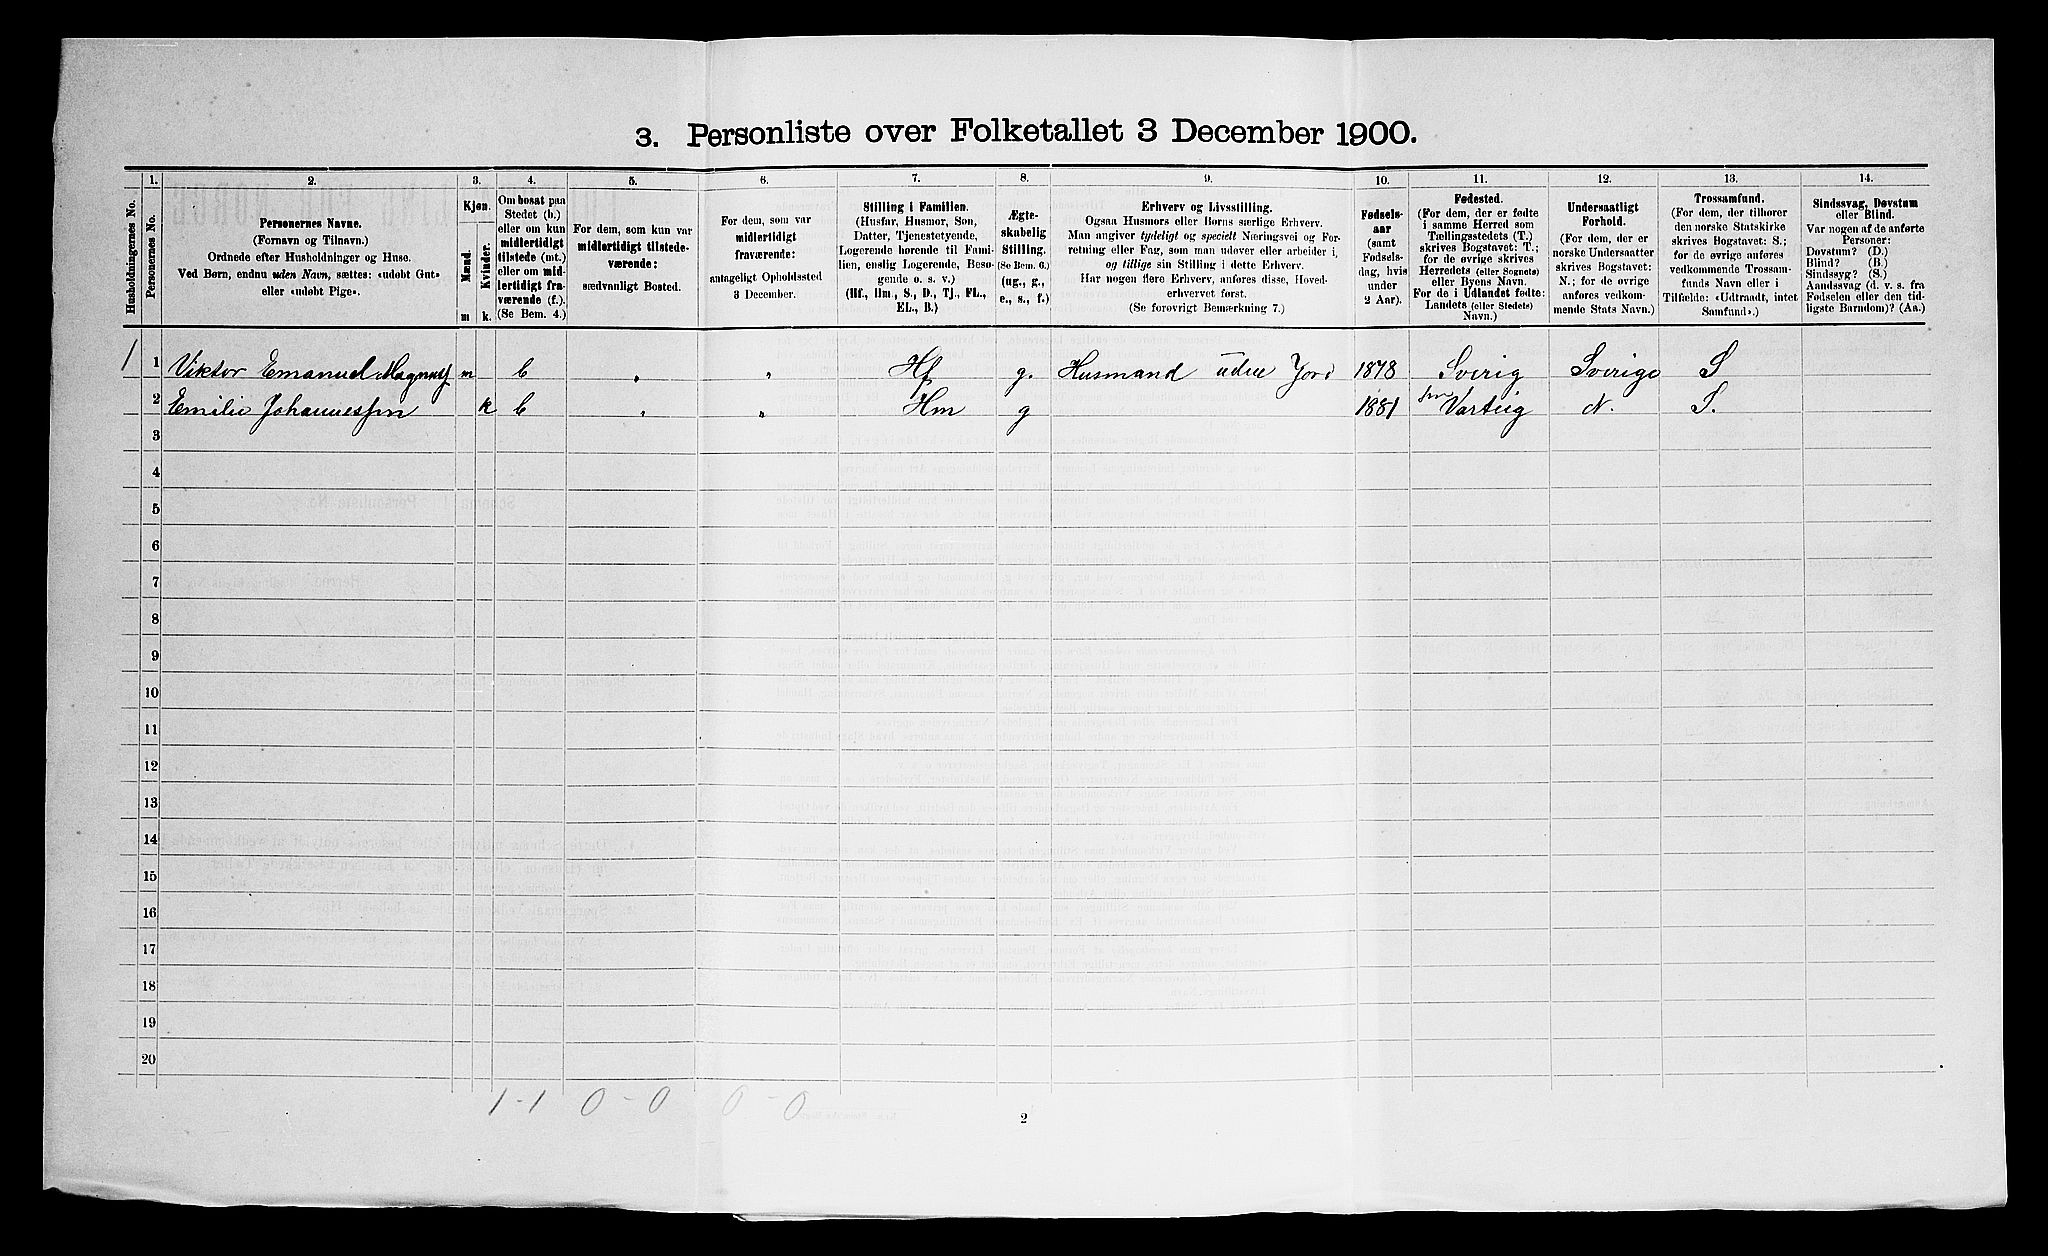 3. Personliste over Folketallet 3 December 1900.
Husholdningernes No.
1.
Personernes No.
2.
Personernes Navne.
(Fornavn og Tilnavn.)
Ordnede efter Husholdninger og Huse.
Ved Børn, endnu uden Navn, sættes: «udøbt Gut»
eller «udøbt Pige».
3.
Kjøn.
Mænd.
Kvinder.
m k.
4.
Om bosat paa
Stedet (b.)
eller om kun
midlertidigt
tilstede (mt.)
eller om mid-
lertidigt fra-
værende (f.).
(Se Bem. 4.)
5.
For dem, som kun var
midlertidigt tilstede-
værende:
sædvanligt Bosted.
6.
For dem, som var
midlertidigt
fraværende:
antageligt Opholdssted
3 December.
7.
Stilling i Familien.
(Husfar, Husmor, Søn,
Datter, Tjenestetyende,
Logerende hørende til Fami-
lien, enslig Logerende, Besø-
gende o. s. v.)
(Hf., Hm., S., D., Tj., FL.,
EL., B.)
8.
Ægte-
skabelig
Stilling.
(Se Bem. 6.)
(ug., g.,
e., s., f.)
9.
Erhverv og Livsstilling.
Ogsaa Husmors eller Børns særlige Erhverv.
Man angiver tydeligt og specielt Næringsvei og For-
retning eller Fag, som man udøver eller arbeider i,
og tillige sin Stilling i dette Erhverv.
Har nogen flere Erhverv, anføres disse, Hoved-
erhvervet først.
(Se forøvrigt Bemærkning 7.)
10.
Fødsels-
aar
(samt
Fødsels-
dag, hvis
under
2 Aar).
11.
Fødested.
(For dem, der er fødte
i samme Herred som
Tællingsstedets (T.)
skrives Bogstavet: T.;
for de øvrige skrives
Herredets (eller Sognets)
eller Byens Navn.
For de i Udlandet fødte:
Landets (eller Stedets)
Navn.)
12.
Undersaatligt
Forhold.
(For dem, der er
norske Undersaatter
skrives Bogstavet:
N.; for de øvrige
anføres vedkom-
mende Stats Navn.)
13.
Trossamfund.
(For dem, der tilhører
den norske Statskirke
skrives Bogstavet: S.;
for de øvrige anføres
vedkommende Trossam-
funds Navn eller i
Tilfælde: «Udtraadt, intet
Samfund».)
14.
Sindssvag, Døvstum
eller Blind.
Var nogen af de anførte
Personer:
Døvstum? (D.)
Blind? (B.)
Sindssyg? (S.)
Aandssvag (d. v. s. fra
Fødselen eller den tid-
ligste Barndom)? (Aa.)
1 1 Viktor Emanuel Magnus m b " " Hf g. Husmand uden Jord 1878 Sverig Sverige S
2 Emilie Johannessen k b " " Hm g 1881 Varteig N. S.
3
4
5
6
7
8
9
10
11
12
13
14
15
16
17
18
19
20
1-1 0-0 0-0
2